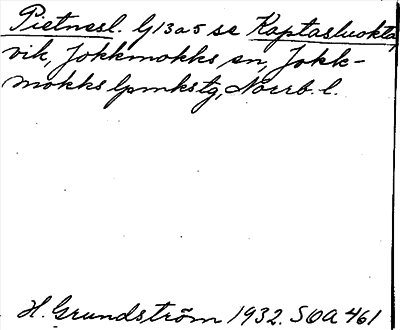 Pietnesl. G13a5 se Kaptasluokta,
vik, Jokkmokks sn, Jokk-
mokks lpmkstg, Norrb. l.
H. Grundström 1932. SOA 461